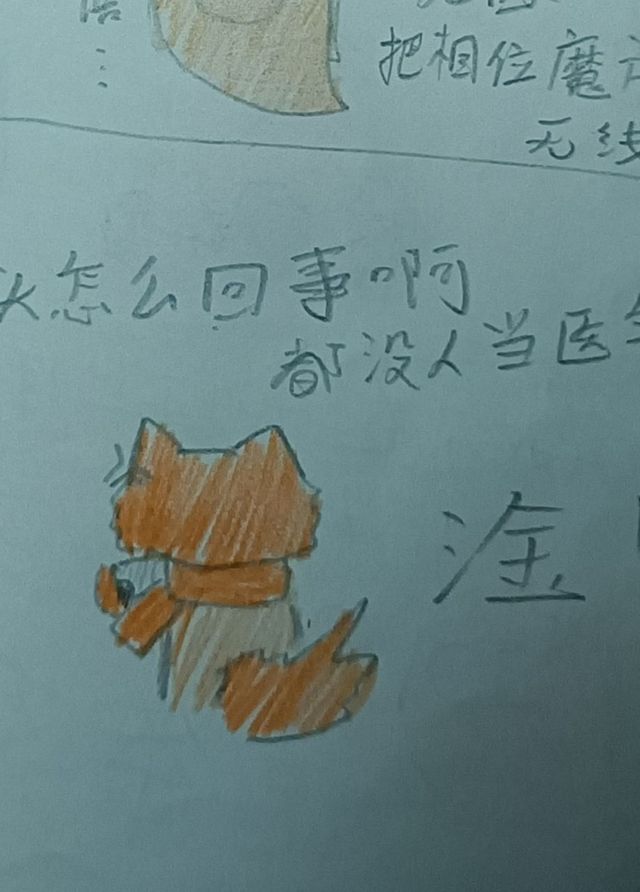 把相位魔
无线
怎么回事啊
都没人当医
淦